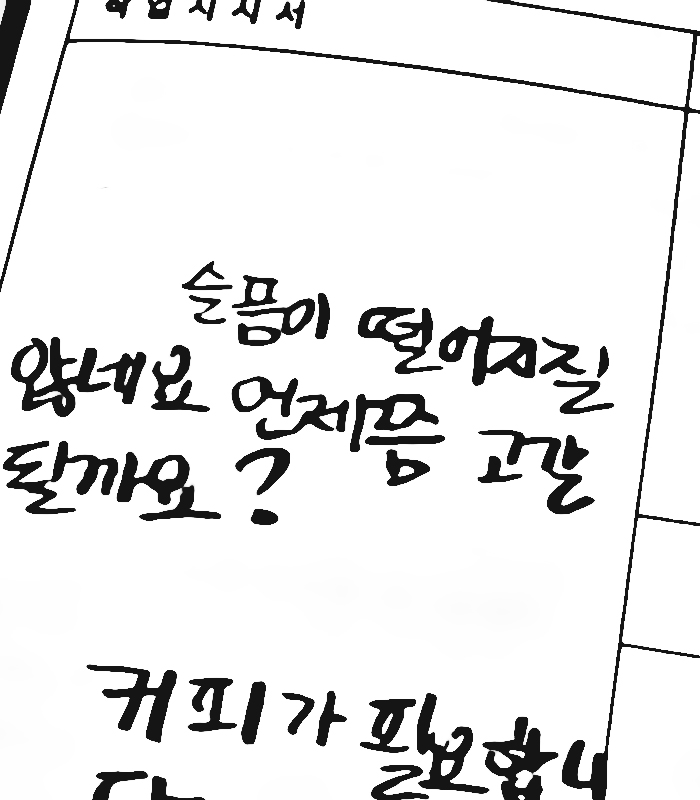 작업지시서
슬픔이 떨어지질
않네요 언제쯤 고갈
될까요?
커피가 필요합니